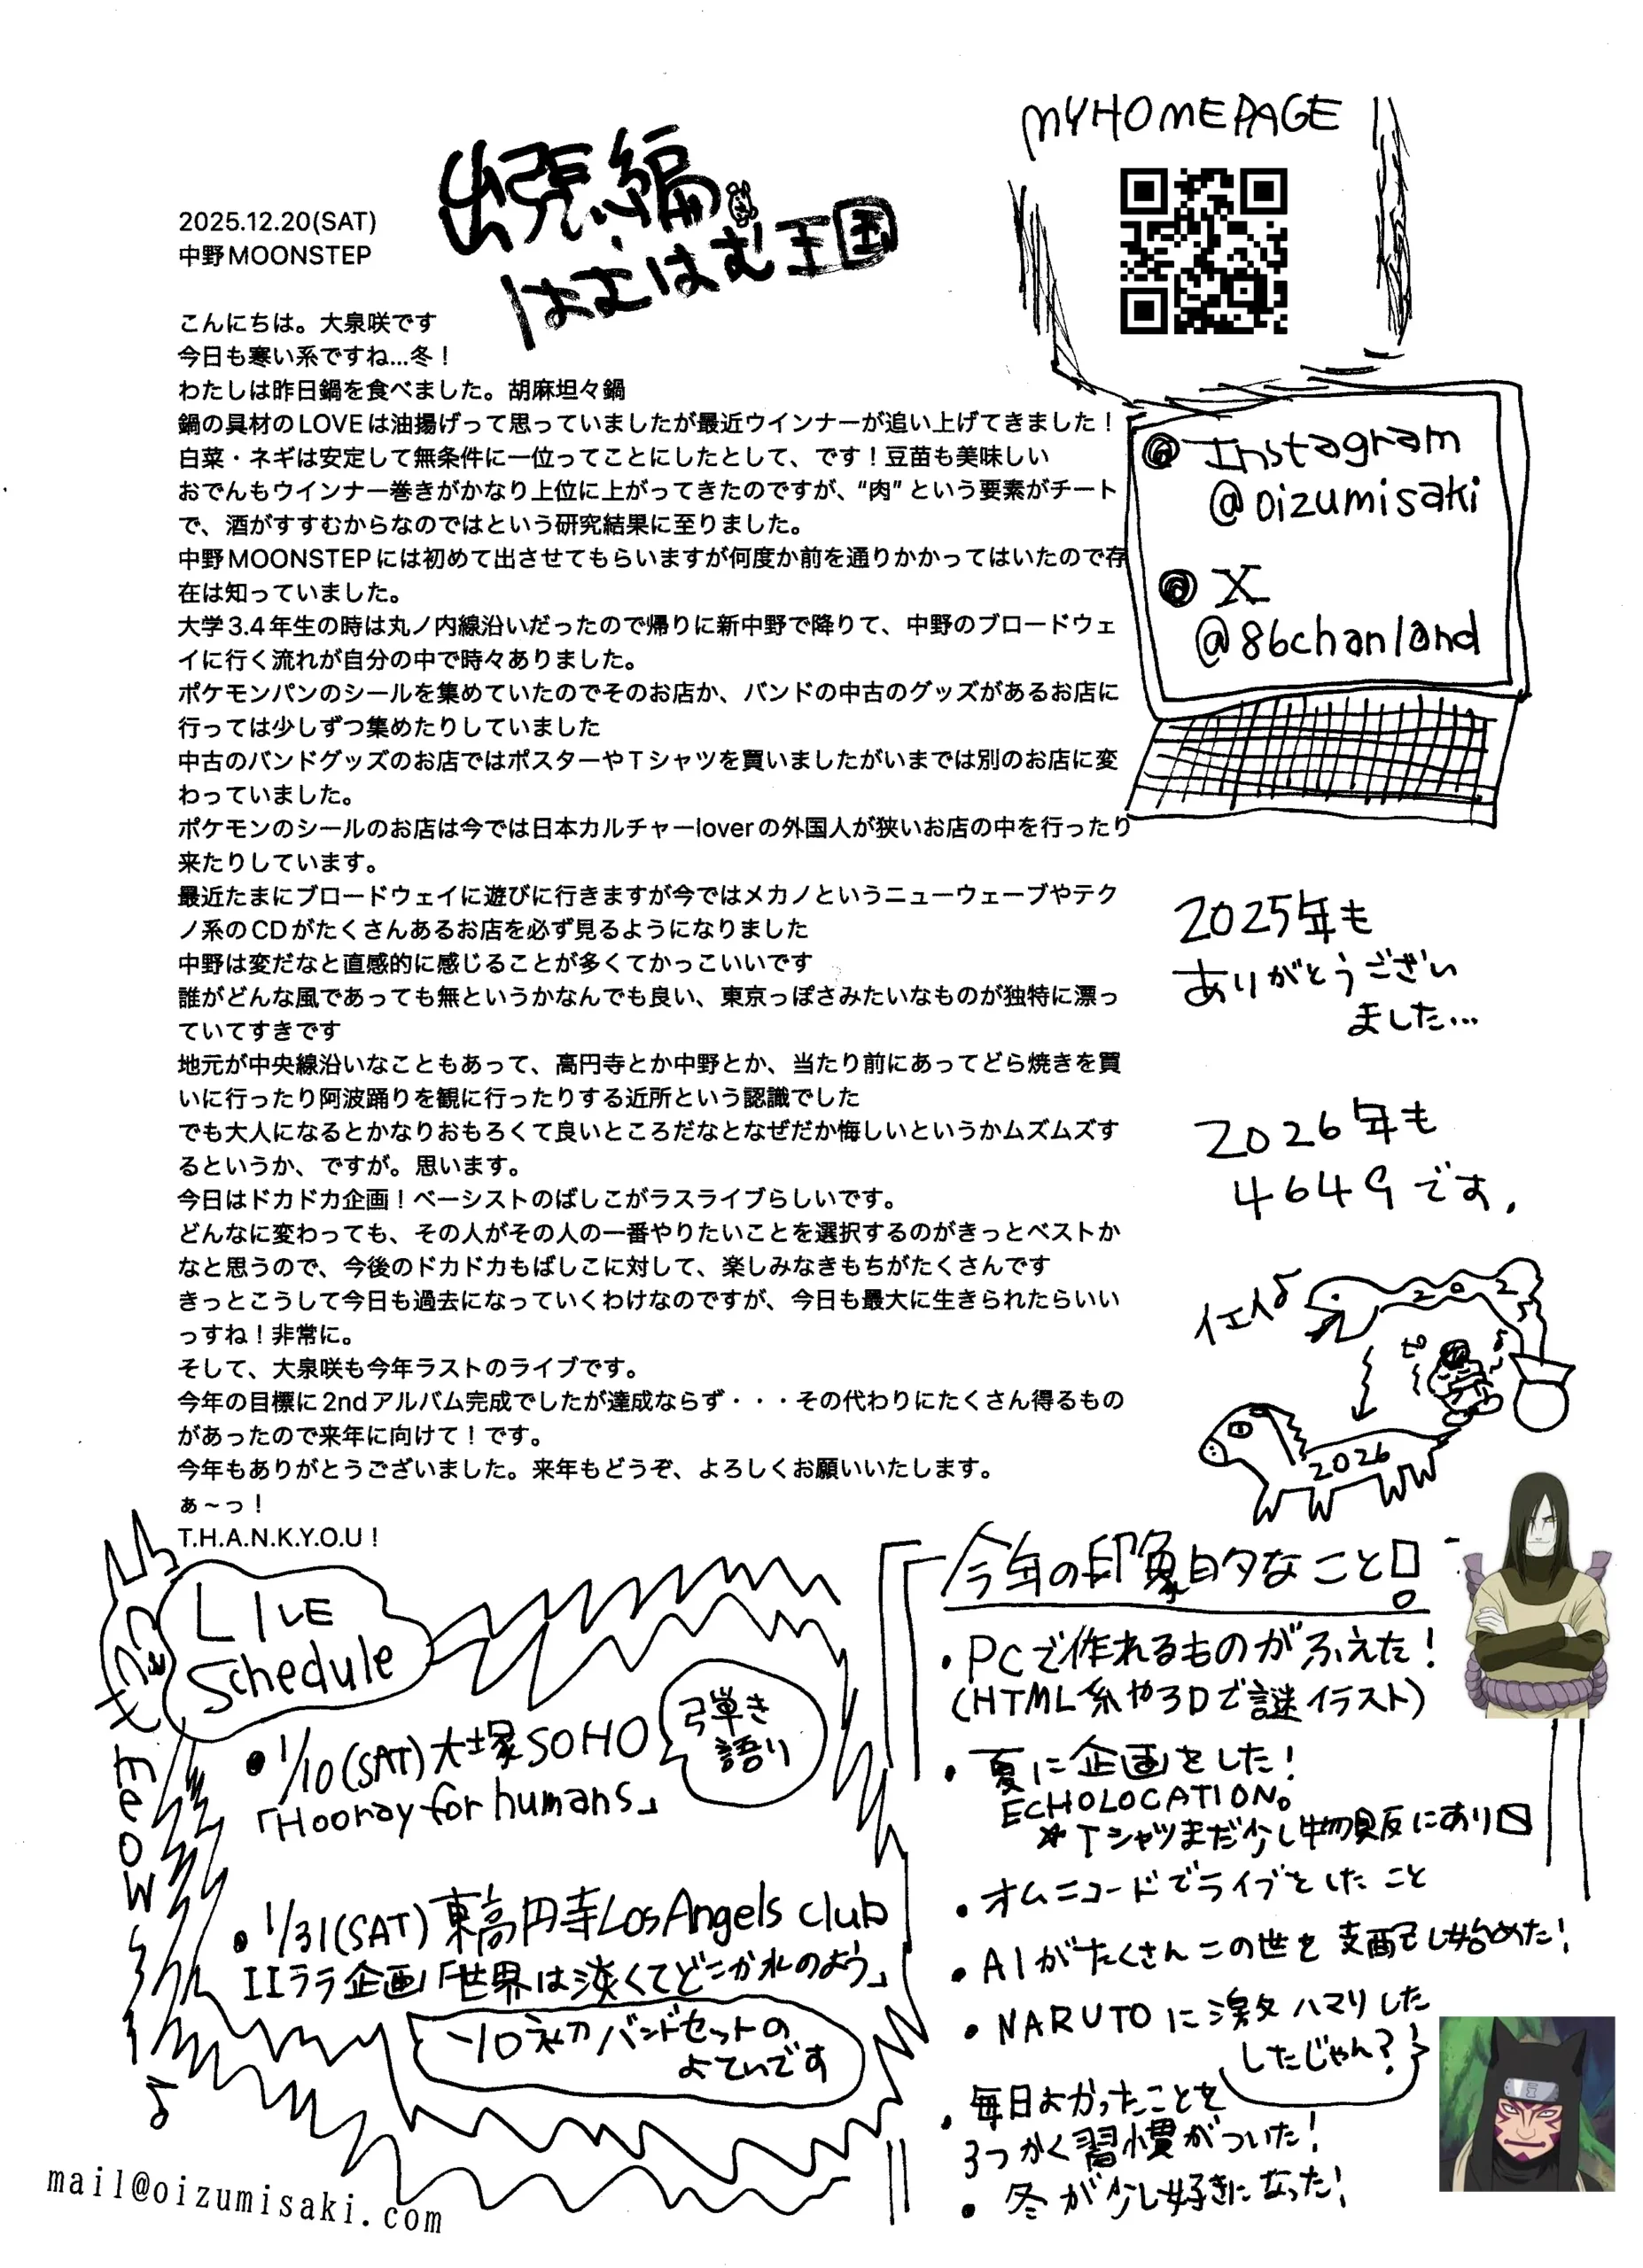 出張編
はむはむ王国
MYHOMEPAGE
2025.12.20(SAT)
中野MOONSTEP
こんにちは。大泉咲です
今日も寒い系ですね...冬！
わたしは昨日鍋を食べました。胡麻坦々鍋
鍋の具材のLOVEは油揚げって思っていましたが最近ウインナーが追い上げてきました！
白菜・ネギは安定して無条件に一位ってことにしたとして、です！豆苗も美味しい
おでんもウインナー巻きがかなり上位に上がってきたのですが、“肉” という要素がチート
で、酒がすすむからなのではという研究結果に至りました。
中野MOONSTEPには初めて出させてもらいますが何度か前を通りかかってはいたので存
在は知っていました。
大学3.4年生の時は丸ノ内線沿いだったので帰りに新中野で降りて、中野のブロードウェ
イに行く流れが自分の中で時々ありました。
ポケモンパンのシールを集めていたのでそのお店か、バンドの中古のグッズがあるお店に
行っては少しずつ集めたりしていました
中古のバンドグッズのお店ではポスターやTシャツを買いましたがいまでは別のお店に変
わっていました。
ポケモンのシールのお店は今では日本カルチャーloverの外国人が狭いお店の中を行ったり
来たりしています。
最近たまにブロードウェイに遊びに行きますが今ではメカノというニューウェーブやテク
ノ系のCDがたくさんあるお店を必ず見るようになりました
中野は変だなと直感的に感じることが多くてかっこいいです
誰がどんな風であっても無というかなんでも良い、東京っぽさみたいなものが独特に漂っ
ていてすきです
地元が中央線沿いなこともあって、高円寺とか中野とか、当たり前にあってどら焼きを買
いに行ったり阿波踊りを観に行ったりする近所という認識でした
でも大人になるとかなりおもろくて良いところだなとなぜだか悔しいというかムズムズす
るというか、ですが。思います。
今日はドカドカ企画！ベーシストのばしこがラスライブらしいです。
どんなに変わっても、その人がその人の一番やりたいことを選択するのがきっとベストか
なと思うので、今後のドカドカもばしこに対して、楽しみなきもちがたくさんです
きっとこうして今日も過去になっていくわけなのですが、今日も最大に生きられたらいい
っすね！非常に。
そして、大泉咲も今年ラストのライブです。
今年の目標に2ndアルバム完成でしたが達成ならず・・・その代わりにたくさん得るもの
があったので来年に向けて！です。
今年もありがとうございました。来年もどうぞ、よろしくお願いいたします。
ぁ～っ！
T.H.A.N.K.Y.O.U！
@Instagram
@oizumisaki
@X
@86chanland
2025年も
ありがとうござい
ました...
2026年も
4649です.
イエイ♪
202
ピ
2026
LIVE
Schedule
・1/10(SAT)大塚SOHO
「Hooray for humans」
弾き
語り
・1/31(SAT)東高円寺LosAngels club
IIララ企画「世界は淡くてどこか水のよう」
ソロ初バンドセットの
よていです
MEOW
mail@oizumisaki.com
今年の印象的なこと！
・PCで作れるものがふえた！
(HTML系や3Dで謎イラスト)
・夏に企画をした！
ECHOLOCATION。
*Tシャツまだ少し物販にあり〼
・オムニコードでライブをしたこと
・AIがたくさんこの世を支配し始めた！
・NARUTOに激ハマりした
したじゃん？
・毎日よかったことを
3つかく習慣がついた！
・冬が少し好きになった！